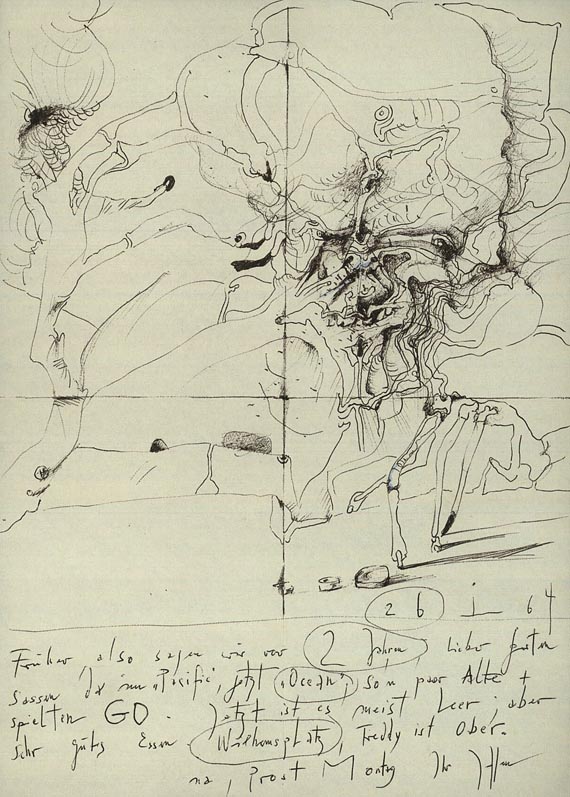 26 1 64
Früher also sagen wir vor 2 Jahren, lieber
Sassen da im „Pacific", jetzt „Ocean", so'n paar Alte +
spielten GO. Jetzt ist es meist leer, aber
sehr gutes Essen Wilhemsplatz, Freddy ist Ober.
na, Prost Montag Ihr